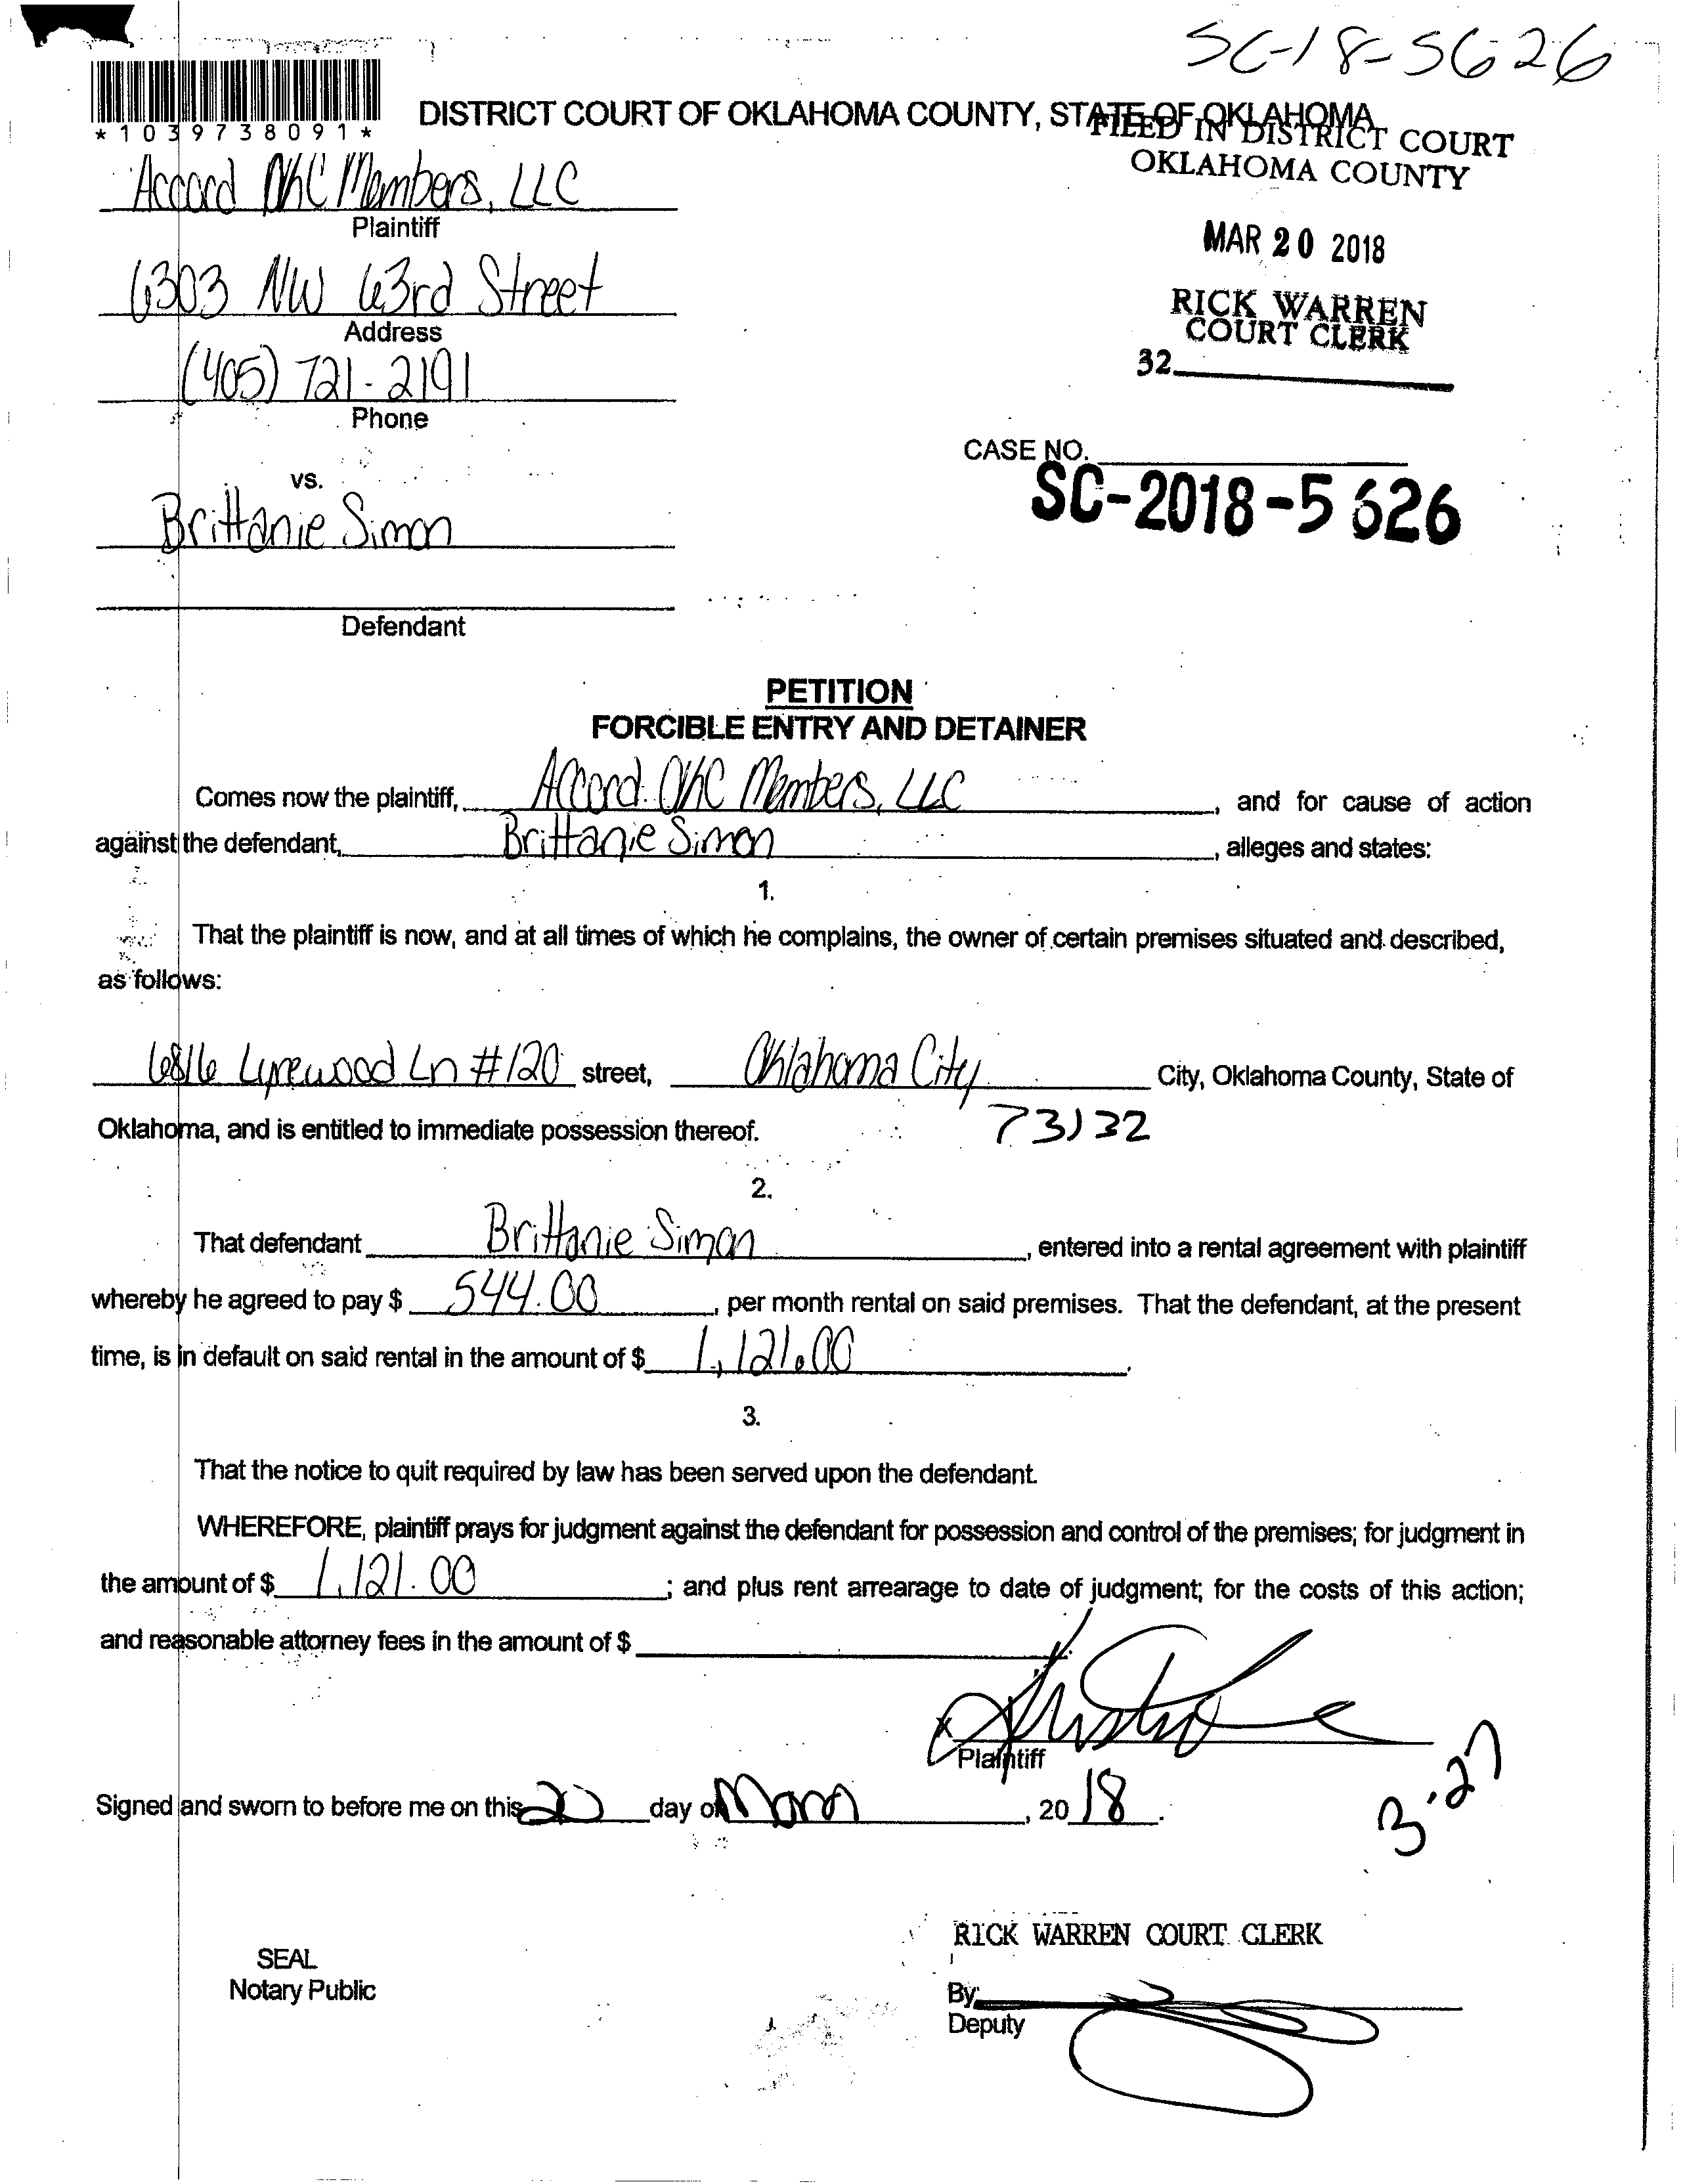 SC-18-5626
*1039738091*
DISTRICT COURT OF OKLAHOMA COUNTY, STATE OF OKLAHOMA
FILED IN DISTRICT COURT
OKLAHOMA COUNTY
Accord OKC Members, LLC
Plaintiff
MAR 20 2018
6303 NW 63rd Street
Address
RICK WARREN
COURT CLERK
32
(405) 721-2191
Phone
CASE NO.
SC-2018-5626
vs.
Brittanie Simon
Defendant
PETITION
FORCIBLE ENTRY AND DETAINER
Comes now the plaintiff, Accord OKC Members, LLC, and for cause of action
against the defendant, Brittanie Simon, alleges and states:
1.
That the plaintiff is now, and at all times of which he complains, the owner of certain premises situated and described,
as follows:
6816 Lyrewood Ln #120 street, Oklahoma City City, Oklahoma County, State of
Oklahoma, and is entitled to immediate possession thereof. 73132
2.
That defendant Brittanie Simon, entered into a rental agreement with plaintiff
whereby he agreed to pay $ 544.00, per month rental on said premises. That the defendant, at the present
time, is in default on said rental in the amount of $ 1,121.00.
3.
That the notice to quit required by law has been served upon the defendant.
WHEREFORE, plaintiff prays for judgment against the defendant for possession and control of the premises; for judgment in
the amount of $ 1,121.00; and plus rent arrearage to date of judgment; for the costs of this action;
and reasonable attorney fees in the amount of $
x
Plaintiff
Signed and sworn to before me on this 20 day of March, 2018.
3-27
RICK WARREN COURT CLERK
SEAL
Notary Public
By:
Deputy